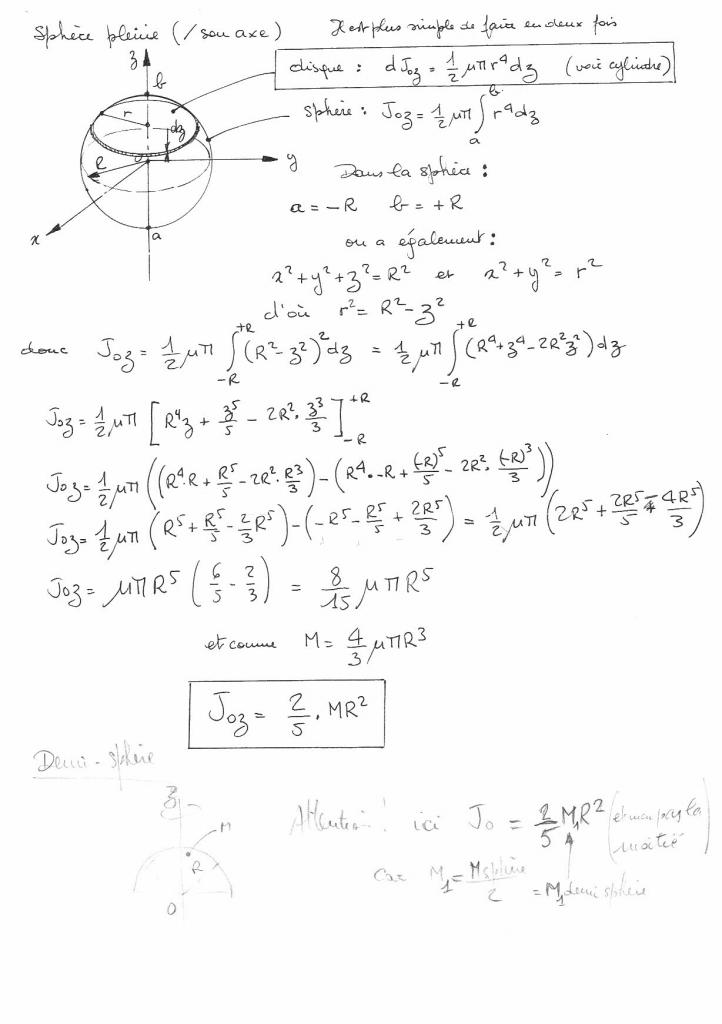 Sphère pleine (/son axe)
Il est plus simple de faire en deux fois
disque : dJoz = 1/2 μπr⁴dz (voir cylindre)
sphère : Joz = 1/2 μπ ∫_a^b r⁴dz
z
b
r
dz
R
y
x
a
Dans la sphère :
a = -R b = +R
on a également :
x² + y² + z² = R² et x² + y² = r²
d'où r² = R² - z²
donc Joz = 1/2 μπ ∫_{-R}^{+R} (R² - z²)² dz = 1/2 μπ ∫_{-R}^{+R} (R⁴ + z⁴ - 2R²z²) dz
Joz = 1/2 μπ [R⁴z + z⁵/5 - 2R². z³/3]_{-R}^{+R}
Joz = 1/2 μπ ((R⁴.R + R⁵/5 - 2R². R³/3) - (R⁴.-R + (-R)⁵/5 - 2R². (-R)³/3))
Joz = 1/2 μπ (R⁵ + R⁵/5 - 2/3 R⁵) - (-R⁵ - R⁵/5 + 2R⁵/3) = 1/2 μπ (2R⁵ + 2R⁵/5 - 4R⁵/3)
Joz = μπR⁵ (6/5 - 2/3) = 8/15 μπR⁵
et comme M = 4/3 μπR³
Joz = 2/5 . MR²
Demi-sphère
z
M
R
O
Attention ! ici Jo = 2/5 M₁R² (et non pas la moitié)
Car M₁ = Msphère/2 = M₁ demi sphère